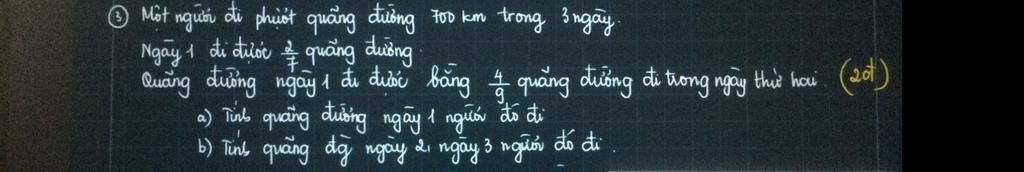 ③ Một người đi phượt quãng đường 700 km trong 3 ngày.
Ngày 1 đi được 2/7 quãng đường.
Quãng đường ngày 1 đi được bằng 4/9 quãng đường đi trong ngày thứ hai. (2đ)
a) Tính quãng đường ngày 1 người đó đi
b) Tính quãng đg ngày 2, ngày 3 người đó đi.